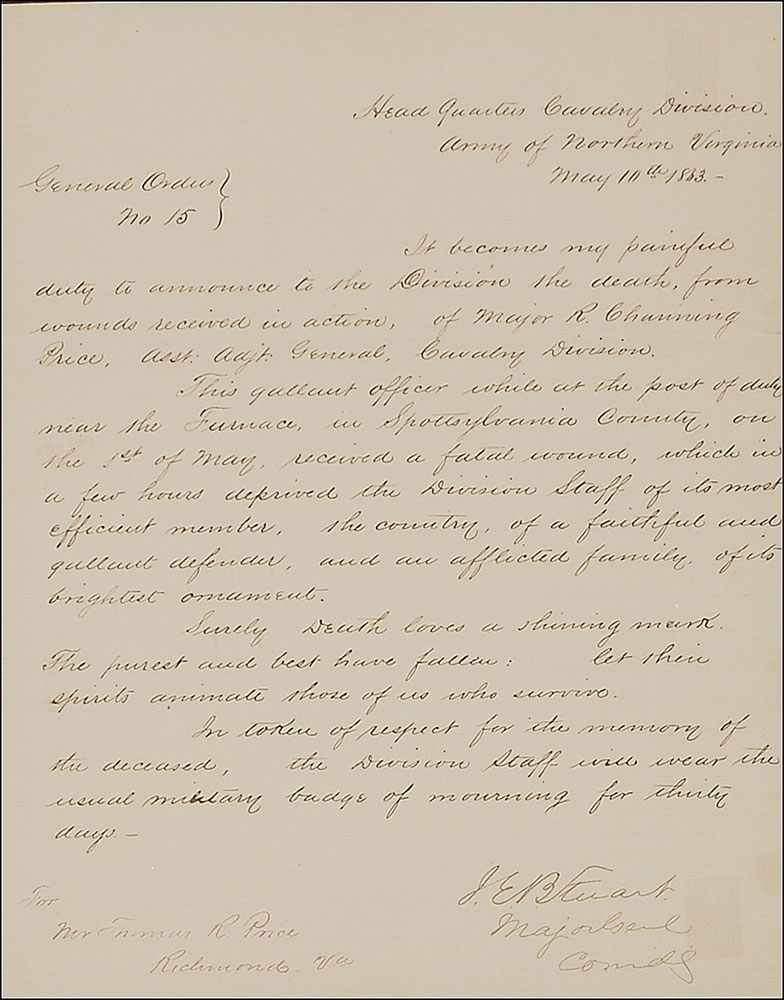 Head Quarters Cavalry Division.
Army of Northern Virginia
May 10th 1863.-
General Orders }
No 15
It becomes my painful
duty to announce to the Division the death, from
wounds received in action, of Major R. Channing
Price, Asst: Adjt: General, Cavalry Division.
This gallant officer while at the post of duty
near the Furnace, in Spottsylvania County, on
the 1st of May, received a fatal wound, which in
a few hours deprived the Division Staff of its most
efficient member, the country, of a faithful and
gallant defender, and an afflicted family, of its
brightest ornament.
Surely Death loves a shining mark.
The purest and best have fallen: let their
spirits animate those of us who survive.
In token of respect for the memory of
the deceased, the Division Staff will wear the
usual military badge of mourning for thirty
days.-
J. E B Stuart.
Major Genl
Comdg
For
Mr Thomas R. Price
Richmond. Va